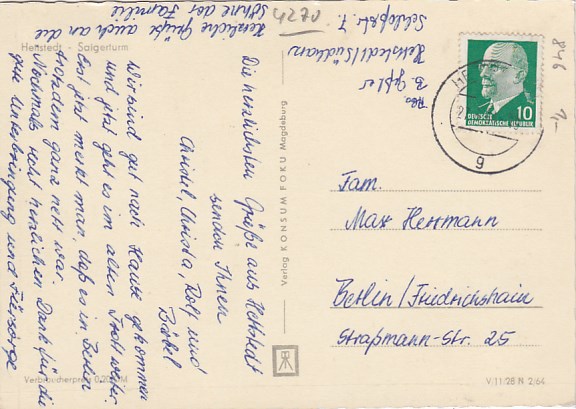 Hettstedt - Saigerturm
4270
846
1,-
Abs. B. Geßler
Hettstedt/Südharz
Schloßstr. 7.
DEUTSCHE
DEMOKRATISCHE REPUBLIK
10
g
Die herzlichsten Grüße aus Hettstedt
senden Ihnen
Christel, Christa, Rolf und
Bärbel
Wir sind gut nach Hause gekommen
und jetzt geht es im alten Trott weiter.
Erst jetzt merkt man, daß es in Berlin
trotzdem ganz nett war.
Nochmals recht herzlichen Dank für die
gute Unterbringung und Fürsorge
Herzliche Grüße auch an die
Söhne der Familie
Verlag KONSUM FOKU Magdeburg
Fam.
Max Herrmann
Berlin/Friedrichshain
Straßmann-Str. 25
Verbraucherpreis 0,20 DM
V 11 28 N 2/64